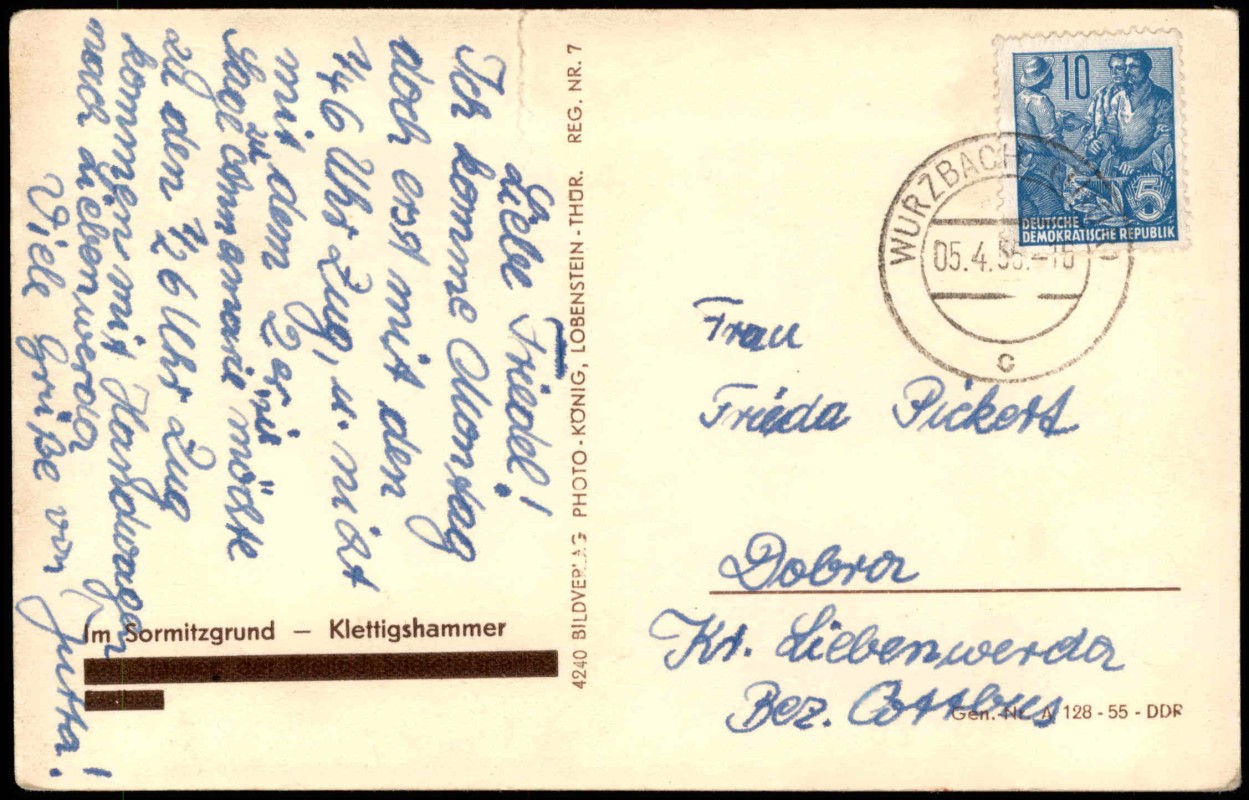 Liebe Friedel!
Ich komme Montag
doch erst mit den
1/46 Uhr Zug, u. nicht
mit dem 2er, ni
zu
möchte
zu den 1/26 Uhr Zug
kommen mit Handwagen
nach Liebenwerda
Viele Grüße von Jutta!
Im Sormitzgrund – Klettigshammer
4240 BILDVERLAG PHOTO-KÖNIG, LOBENSTEIN-THÜR. REG. NR. 7
10
5
DEUTSCHE
DEMOKRATISCHE REPUBLIK
WURZBACH
05.4. -16
c
Frau
Frieda Pickert
Dobra
Kr. Liebenwerda
Bez. Cottbus
Gen.-Nr. A 128-55-DDR